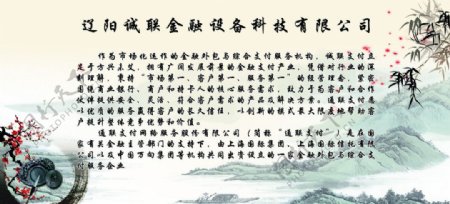 辽阳诚联金融设备科技有限公司
作为市场化运作的金融外包与综合支付服务机构，诚联支付立
足于方兴未艾、拥有广阔发展前景的金融支付产业，凭借对行业的深
刻理解，秉持“市场第一、客户第一、服务第一”的经营理念，紧密
围绕商业银行、商户和持卡人的核心服务需求，致力于为客户和合作
伙伴提供安全、灵活、符合客户需求的产品及解决方案。通联支付愿
以优质的服务赢得客户的长久信任，以创新的模式最大限度地帮助客
户提升整体竞争优势和价值。
通联支付网络服务股份有限公司（简称“通联支付”）是在国
家有关金融主管部门的支持下，由上海国际集团、上海国际信托有限
公司以及中国万向集团等机构共同出资设立的一家金融外包与综合支
付服务企业